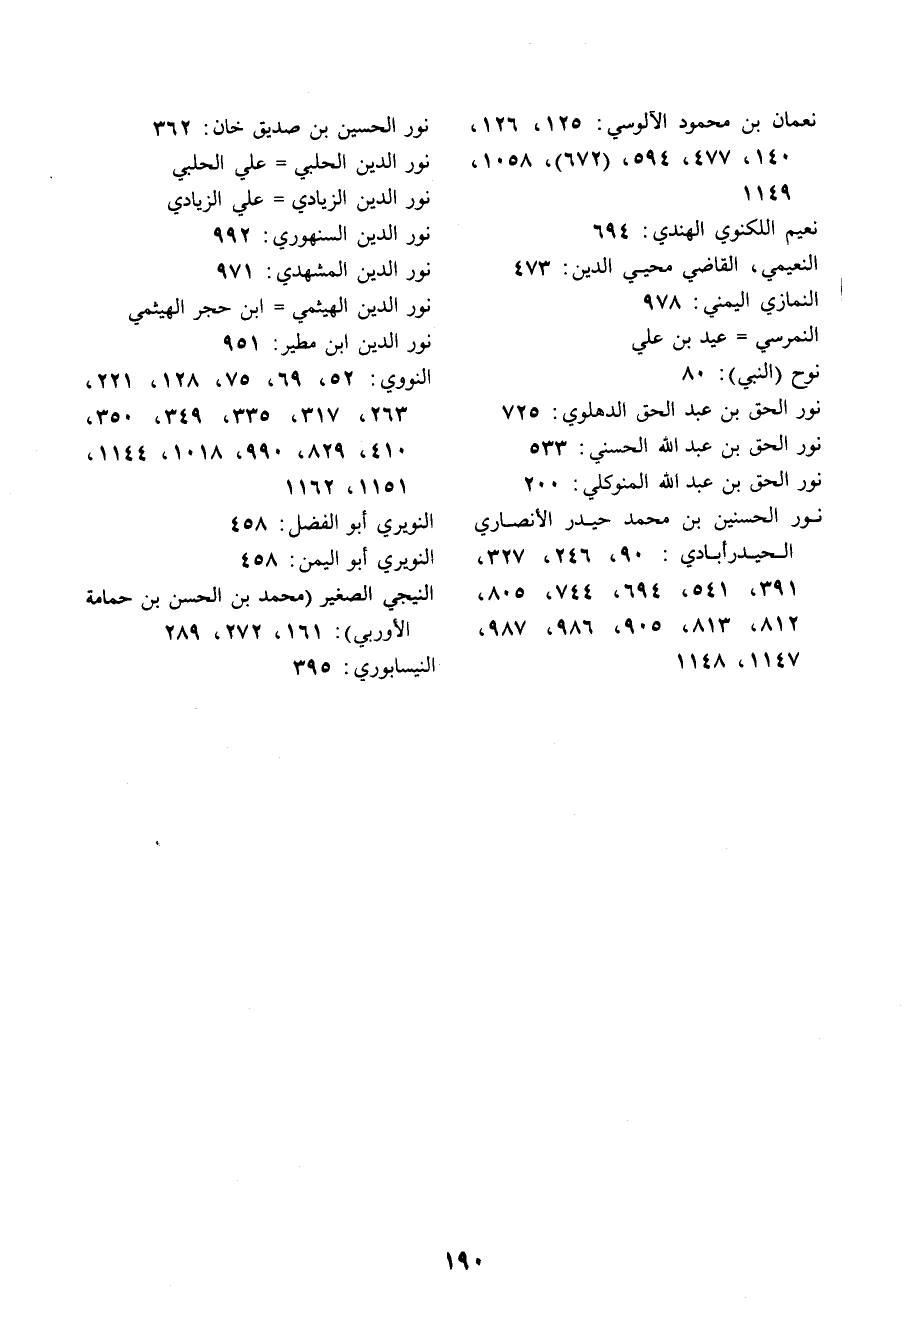 نعمان بن محمود الآلوسي: ١٢٥، ١٢٦،
١٤٠، ٤٧٧، ٥٩٤، (٦٧٢)، ١٠٥٨،
١١٤٩
نعيم اللكنوي الهندي: ٦٩٤
النعيمي، القاضي محيي الدين: ٤٧٣
النمازي اليمني: ٩٧٨
النمرسي = عيد بن علي
نوح (النبي): ٨٠
نور الحق بن عبد الحق الدهلوي: ٧٢٥
نور الحق بن عبد الله الحسني: ٥٣٣
نور الحق بن عبد الله المنوكلي: ٢٠٠
نور الحسنين بن محمد حيدر الأنصاري
الحيدرأبادي : ٩٠، ٢٤٦، ٣٢٧،
٣٩١، ٥٤١، ٦٩٤، ٧٤٤، ٨٠٥،
٨١٢، ٨١٣، ٩٠٥، ٩٨٦، ٩٨٧،
١١٤٧، ١١٤٨
نور الحسين بن صديق خان: ٣٦٢
نور الدين الحلبي = علي الحلبي
نور الدين الزيادي = علي الزيادي
نور الدين السنهوري: ٩٩٢
نور الدين المشهدي: ٩٧١
نور الدين الهيثمي = ابن حجر الهيثمي
نور الدين ابن مطير: ٩٥١
النووي: ٥٢، ٦٩، ٧٥، ١٢٨، ٢٢١،
٢٦٣، ٣١٧، ٣٣٥، ٣٤٩، ٣٥٠،
٤١٠، ٨٢٩، ٩٩٠، ١٠١٨، ١١٤٤،
١١٥١، ١١٦٢
النويري أبو الفضل: ٤٥٨
النويري أبو اليمن: ٤٥٨
النيجي الصغير (محمد بن الحسن بن حمامة
الأوربي): ١٦١، ٢٧٢، ٢٨٩
النيسابوري: ٣٩٥
١٩٠